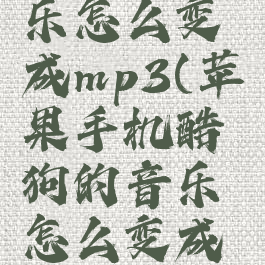 乐怎么变
成mp3(苹
果手机酷
狗的音乐
怎么变成